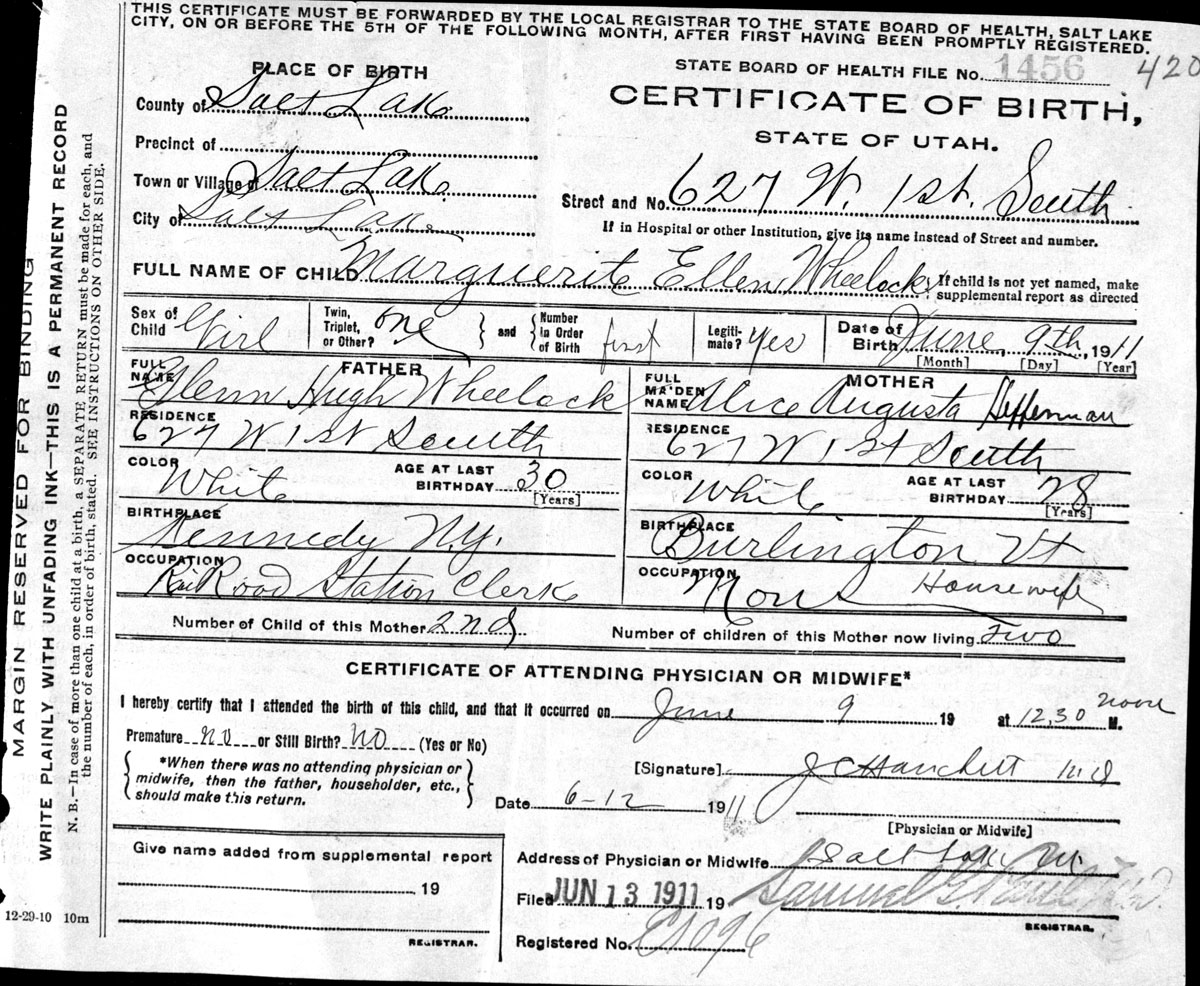 THIS CERTIFICATE MUST BE FORWARDED BY THE LOCAL REGISTRAR TO THE STATE BOARD OF HEALTH, SALT LAKE
CITY, ON OR BEFORE THE 5TH OF THE FOLLOWING MONTH, AFTER FIRST HAVING BEEN PROMPTLY REGISTERED.
PLACE OF BIRTH
STATE BOARD OF HEALTH FILE No. 1456 420
County of Salt Lake
CERTIFICATE OF BIRTH,
STATE OF UTAH.
Precinct of
Town or Village of Salt Lake
Street and No. 627 W. 1st. South
City of Salt Lake
If in Hospital or other Institution, give its name instead of Street and number.
FULL NAME OF CHILD Marguerite Ellen Wheelock
If child is not yet named, make
supplemental report as directed
Sex of Child Girl
Twin, Triplet, or Other? One
and Number in Order of Birth first
Legiti-mate? Yes
Date of Birth June, 9th, 1911
[Month] [Day] [Year]
FATHER
FULL NAME Glenn Hugh Wheelock
RESIDENCE
627 W 1st South
COLOR White
AGE AT LAST BIRTHDAY 30
[Years]
BIRTHPLACE
Kennedy N.Y.
OCCUPATION
Rail Road Station Clerk
MOTHER
FULL MAIDEN NAME Alice Augusta Heffernan
RESIDENCE
627 W 1st South
COLOR White
AGE AT LAST BIRTHDAY 28
[Years]
BIRTHPLACE
Burlington Vt
OCCUPATION
None Housewife
Number of Child of this Mother 2nd
Number of children of this Mother now living Two
CERTIFICATE OF ATTENDING PHYSICIAN OR MIDWIFE*
I hereby certify that I attended the birth of this child, and that it occurred on June 9 19 at 12.30 noon M.
Premature No or Still Birth? No (Yes or No)
*When there was no attending physician or
midwife, then the father, householder, etc.,
should make this return.
[Signature] J C Hanchett M D
Date 6-12 1911
[Physician or Midwife]
Give name added from supplemental report
19
REGISTRAR.
Address of Physician or Midwife Salt Lake
Filed JUN 13 1911 19
Samuel G. Paul M.D.
REGISTRAR.
Registered No.
12-29-10 10m
MARGIN RESERVED FOR BINDING
WRITE PLAINLY WITH UNFADING INK—THIS IS A PERMANENT RECORD
N. B.—In case of more than one child at a birth, a SEPARATE RETURN must be made for each, and
the number of each, in order of birth, stated. SEE INSTRUCTIONS ON OTHER SIDE.